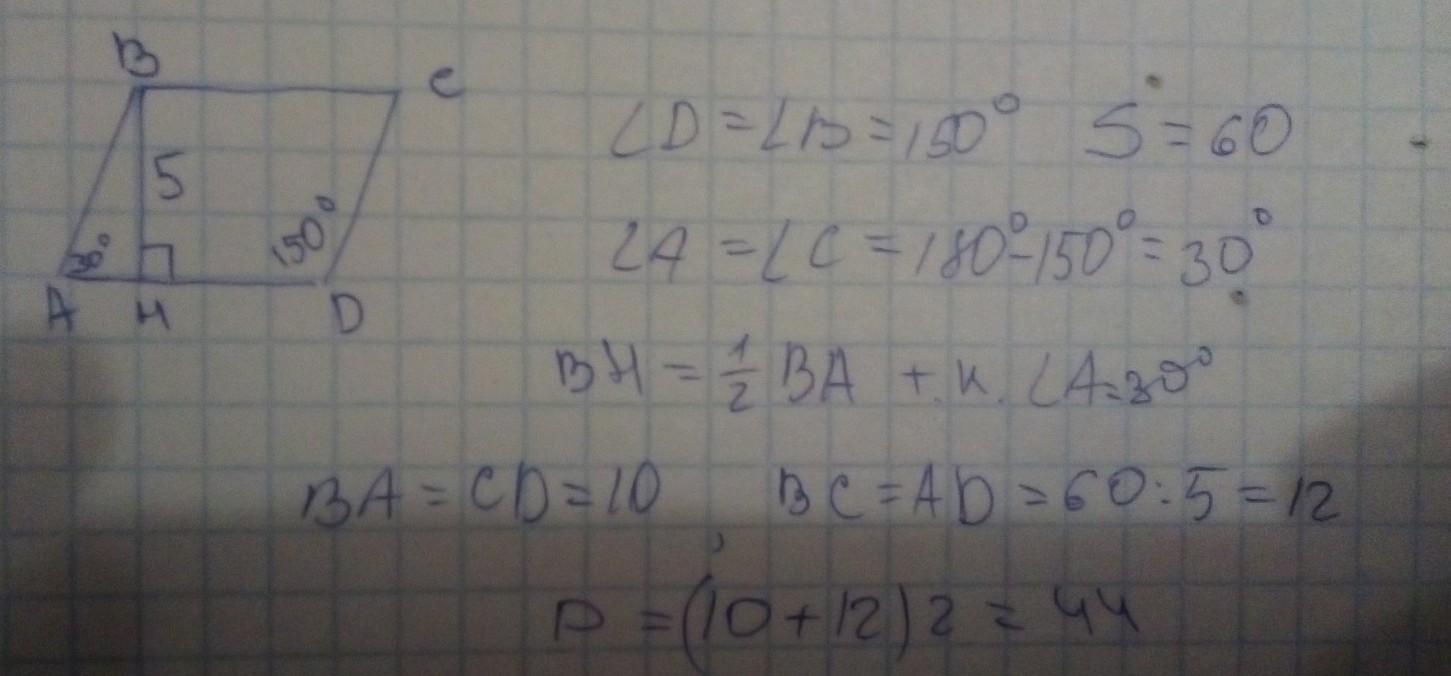 B C
5
30° 150°
A H D
∠D = ∠B = 150° S = 60
∠A = ∠C = 180° - 150° = 30°
BH = 1/2 BA т.к. ∠A = 30°
BA = CD = 10, BC = AD = 60 : 5 = 12
P = (10 + 12) 2 = 44